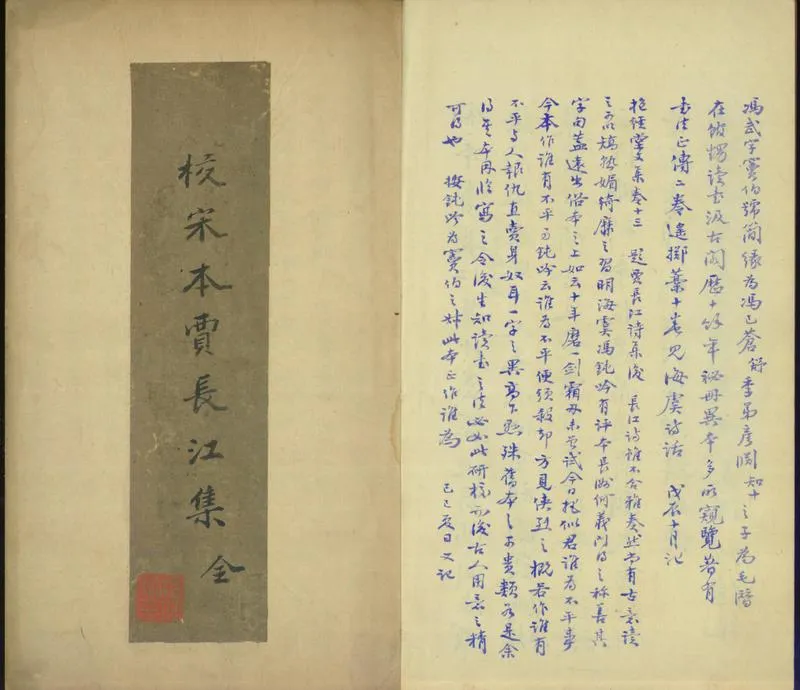 馮武字竇伯號簡緣為馮己蒼舒季弟彥淵知十之子為毛潛
在館甥讀書汲古閣歷十餘年祕冊異本多所窺覽著有
書法正傳二卷遙擲藁十卷見海虞詩話 戊辰十月記
抱經堂文集卷十三 題賈長江詩集後 長江詩雖不合雅奏然尚有古意讀
之可以矯熟媚綺靡之習明海虞馮鈍吟有評本長洲何義門得之稱善其
字句蓋遠出俗本之上如云十年磨一劍霜刃未曾試今日把似君誰為不平事
今本作誰有不平鈍吟云誰為不平便須殺卻方見俠烈之概若作誰有
不平與人報仇直賣身奴耳一字之異高下懸殊舊本之可貴類若是余
得其本因臨寫之令後生知讀書之法必如此研核而後古人用意之精
可得也 按鈍吟為竇伯之叔此本正作誰為 己巳夏日又記
校宋本賈長江集 全